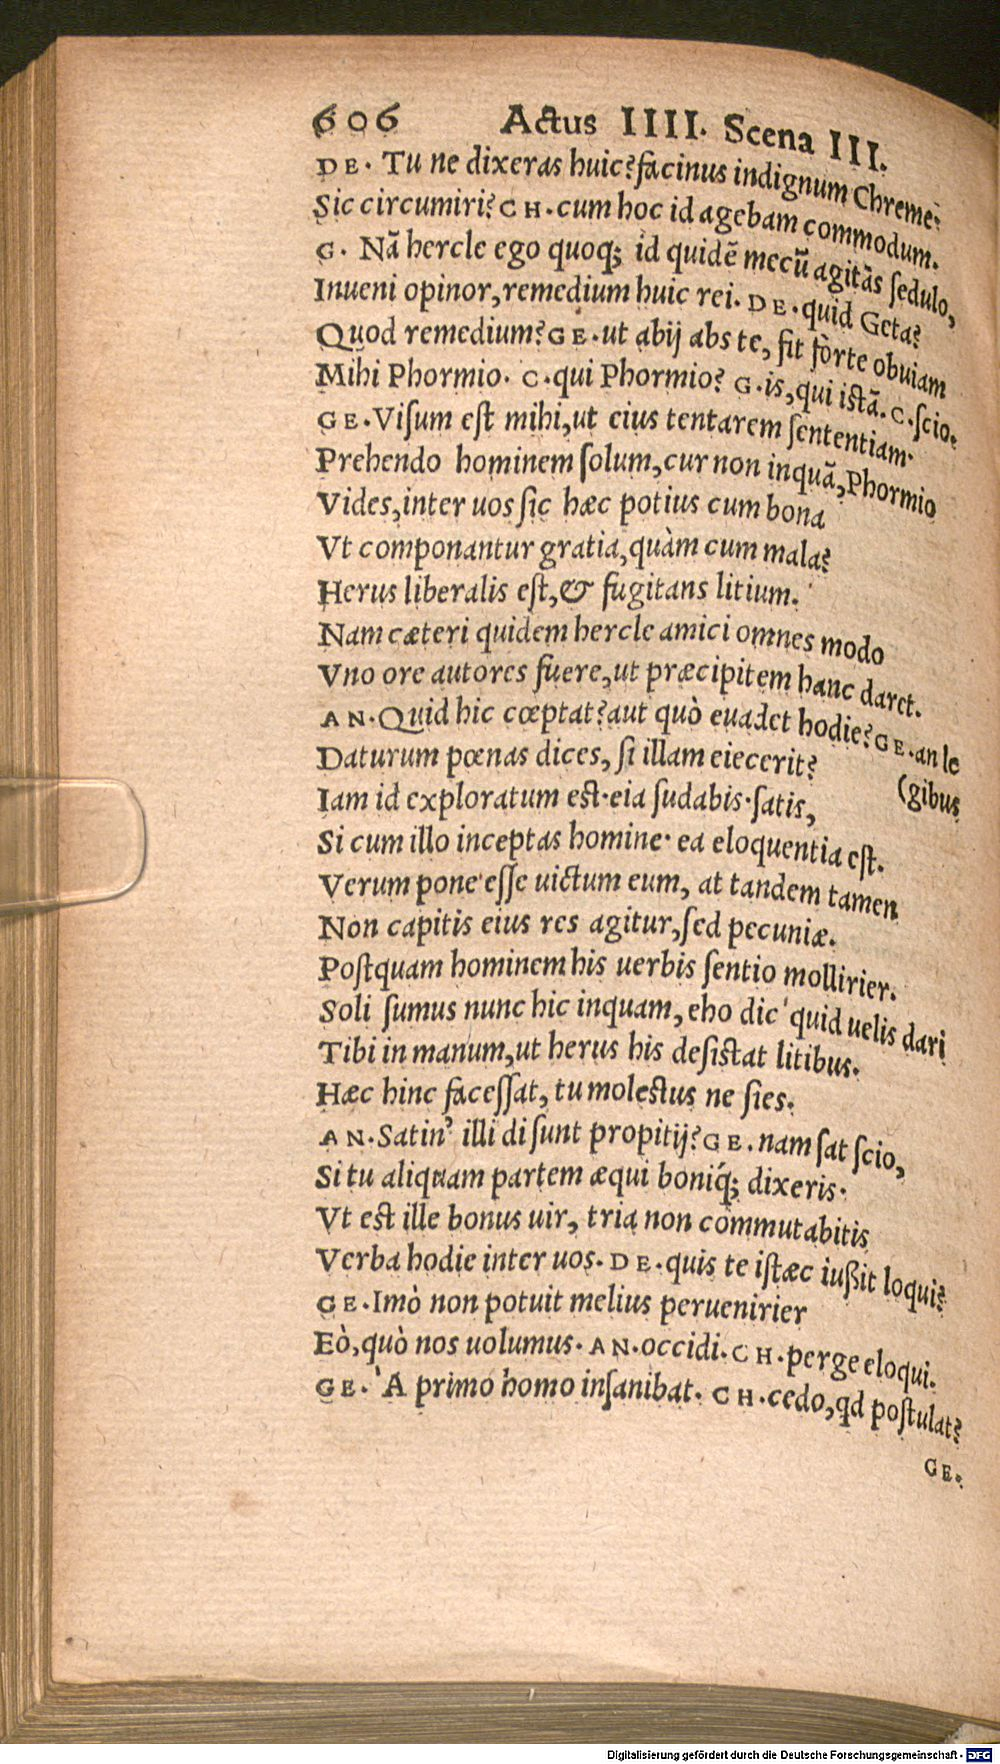 606 Actus IIII. Scena III.
DE. Tu ne dixeras huic? facinus indignum Chreme?
Sic circumiri? CH. cum hoc id agebam commodum.
G. Nã hercle ego quoq; id quidẽ mecũ agitãs ſedulo,
Inueni opinor, remedium huic rei. DE. quid Geta?
Quod remedium? GE. ut abij abs te, fit fòrte obuiam
Mihi Phormio. C. qui Phormio? G. is, qui iſtã. C. ſcio.
GE. Viſum eſt mihi, ut eius tentarem ſententiam.
Prehendo hominem ſolum, cur non inquã, Phormio
Vides, inter uos ſic hæc potius cum bona
Vt componantur gratia, quàm cum mala?
Herus liberalis eſt, & fugitans litium.
Nam cæteri quidem hercle amici omnes modo
Vno ore autores fuere, ut præcipitem hanc daret.
AN. Quid hic cœptat? aut quò euadet hodie? GE. an le
(gibus
Daturum pœnas dices, ſi illam eiecerit?
Iam id exploratum est. eia ſudabis. ſatis,
Si cum illo inceptas homine. ea eloquentia eſt.
Verum pone eſſe uictum eum, at tandem tamen
Non capitis eius res agitur, ſed pecuniæ.
Poſtquam hominem his uerbis ſentio mollirier.
Soli ſumus nunc hic inquam, eho dic quid uelis dari
Tibi in manum, ut herus his deſistat litibus.
Hæc hinc faceſſat, tu molestus ne ſies.
AN. Satin' illi di ſunt propitij? GE. nam ſat ſcio,
Si tu aliquam partem æqui boniq́; dixeris.
Vt est ille bonus uir, tria non commutabitis
Verba hodie inter uos. DE. quis te iſtæc iußit loqui?
GE. Imò non potuit melius peruenirier
Eò, quò nos uolumus. AN. occidi. CH. perge eloqui.
GE. A primo homo inſanibat. CH. cedo, qd poſtulat?
GE.
Digitalisierung gefördert durch die Deutsche Forschungsgemeinschaft - DFG